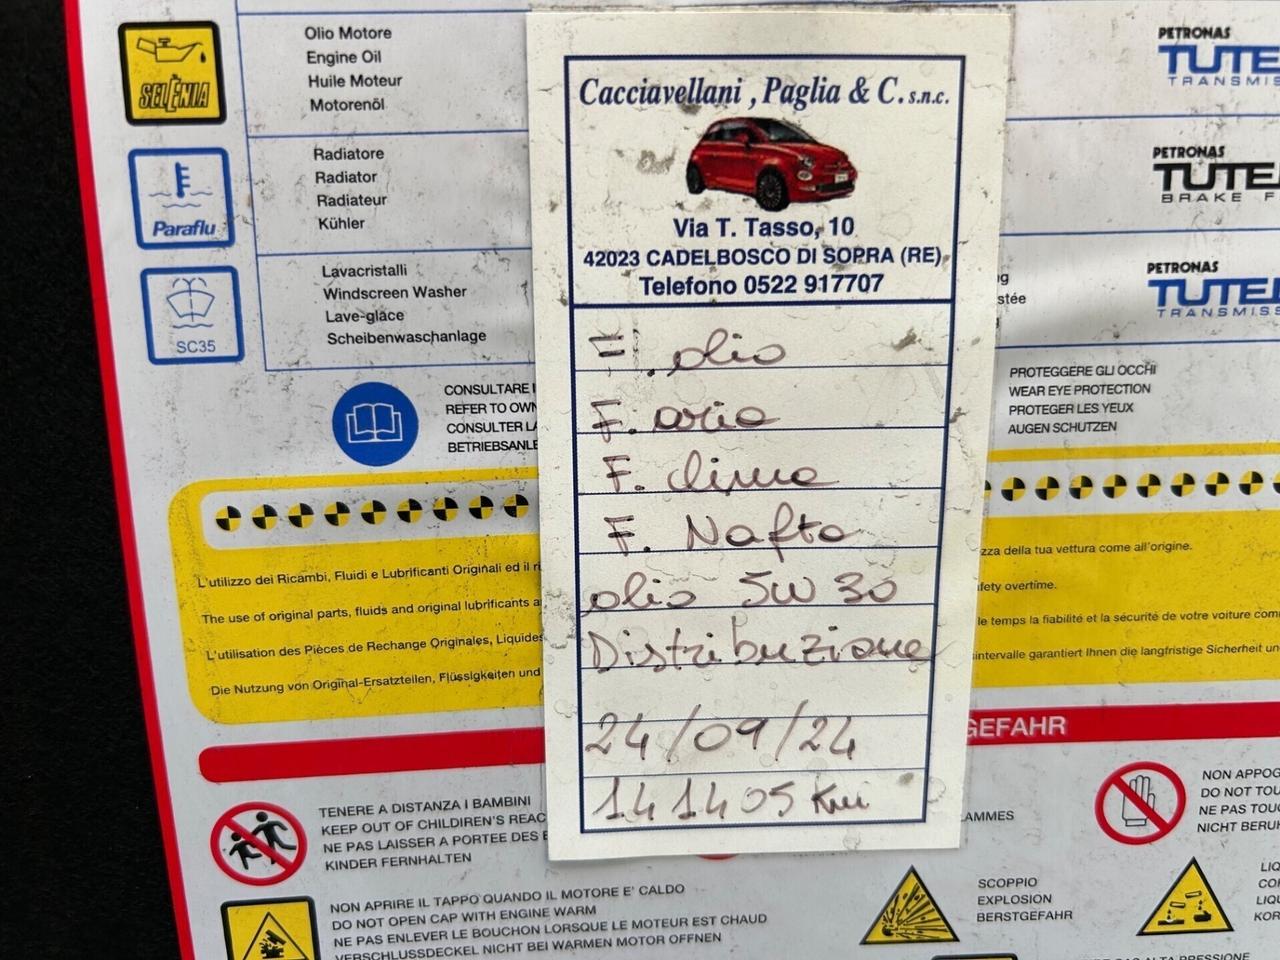 SELÈNIA
Olio Motore
Engine Oil
Huile Moteur
Motorenöl
Paraflu
Radiatore
Radiator
Radiateur
Kühler
SC35
Lavacristalli
Windscreen Washer
Lave-glace
Scheibenwaschanlage
PETRONAS
TUTE
TRANSMIS
PETRONAS
TUTE
BRAKE F
PETRONAS
TUTE
TRANSMIS
stée
CONSULTARE
REFER TO OWN
CONSULTER LA
BETRIEBSANLE
PROTEGGERE GLI OCCHI
WEAR EYE PROTECTION
PROTEGER LES YEUX
AUGEN SCHUTZEN
Cacciavellani , Paglia & C. s.n.c.
Via T. Tasso, 10
42023 CADELBOSCO DI SOPRA (RE)
Telefono 0522 917707
F. olio
F. aria
F. clima
F. Nafta
olio 5W 30
Distribuzione
24/09/24
141405 Km
L'utilizzo dei Ricambi, Fluidi e Lubrificanti Originali ed il
zza della tua vettura come all'origine.
The use of original parts, fluids and original lubrificants
fety overtime.
L'utilisation des Pièces de Rechange Originales, Liquides
le temps la fiabilité et la sécurité de votre voiture com
Die Nutzung von Original-Ersatzteilen, Flüssigkeiten und
intervalle garantiert Ihnen die langfristige Sicherheit un
GEFAHR
TENERE A DISTANZA I BAMBINI
KEEP OUT OF CHILDREN'S REAC
NE PAS LAISSER A PORTEE DES
KINDER FERNHALTEN
AMMES
NON APPOG
DO NOT TOU
NE PAS TOUC
NICHT BERU
NON APRIRE IL TAPPO QUANDO IL MOTORE E' CALDO
DO NOT OPEN CAP WITH ENGINE WARM
NE PAS ENLEVER LE BOUCHON LORSQUE LE MOTEUR EST CHAUD
VERSCHLUSSDECKEL NICHT BEI WARMEN MOTOR OFFNEN
SCOPPIO
EXPLOSION
BERSTGEFAHR
LIQ
COR
LIQU
KOR